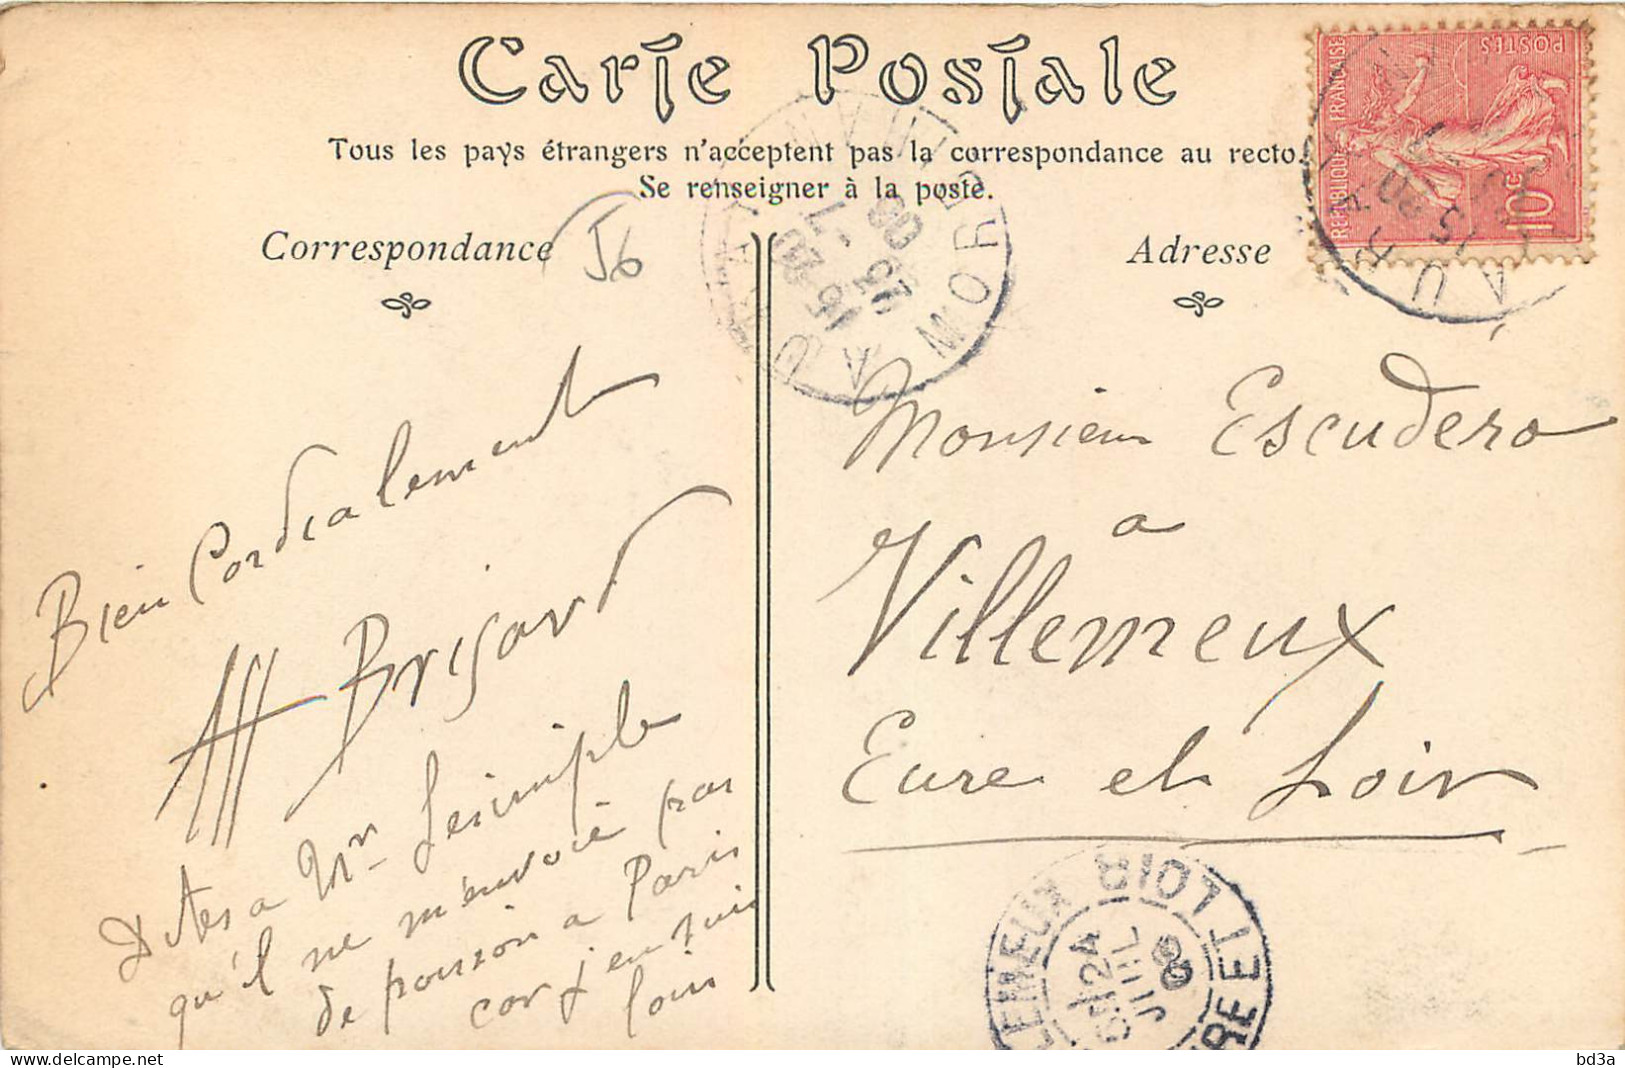 Carte Postale
Tous les pays étrangers n'acceptent pas la correspondance au recto.
Se renseigner à la poste.
Correspondance
56
Adresse
REPUBLIQUE FRANÇAISE
POSTES
10c
Bien Cordialement
Brisard
Dites a Mr Lesimple
qu'il ne m'envoie pas
de poisson a Paris
car j'en suis
loin
Monsieur Escudero
a
Villemeux
Eure et Loir
MORLAIX
VILLEMEUX
EURE ET LOIR
JUIL
06
bd3a